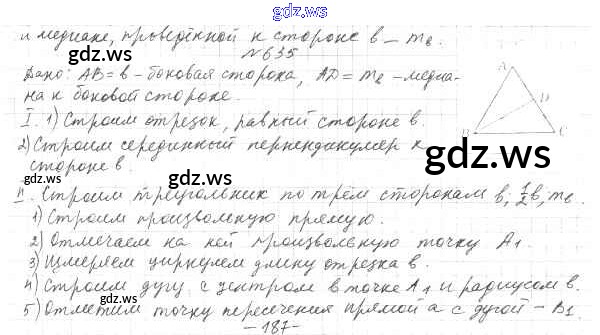 gdz.ws
и медиане, проведённой к стороне в – mв.
№ 635
Дано: AB = в – боковая сторона, AD = mв – медиа-
на к боковой стороне.
I. 1) Строим отрезок, равный стороне в.
2) Строим серединный перпендикуляр к
стороне в.
II. Строим треугольник по трём сторонам в; 1/2 в; mв.
1) Строим произвольную прямую.
2) Отмечаем на ней произвольную точку A1.
3) Измеряем циркулем длину отрезка в.
4) Строим дугу с центром в точке A1 и радиусом в.
5) Отметим точку пересечения прямой а с дугой – B1.
– 187 –
A
D
B
C
gdz.ws
gdz.ws
gdz.ws
gdz.ws
gdz.ws
gdz.ws
gdz.ws
gdz.ws